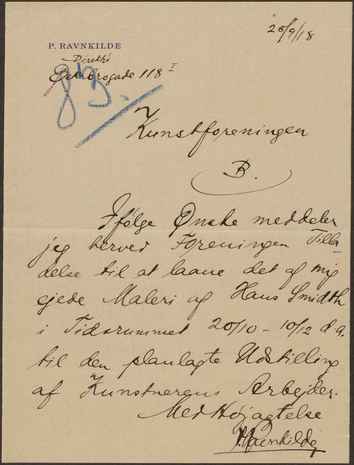 26/9/18
P. RAVNKILDE
Direktør
brogade 118 I
Kunstforeningen
B.
Ifølge Ønske meddeler
jeg herved Foreningen Tilla-
delse til at laane det af mig
ejede Maleri af Hans Smidth
i Tidsrummet 20/10 - 10/12 d a
til den planlagte Udstilling
af Kunstnerens Arbejder.
Med Højagtelse
P Ravnkilde